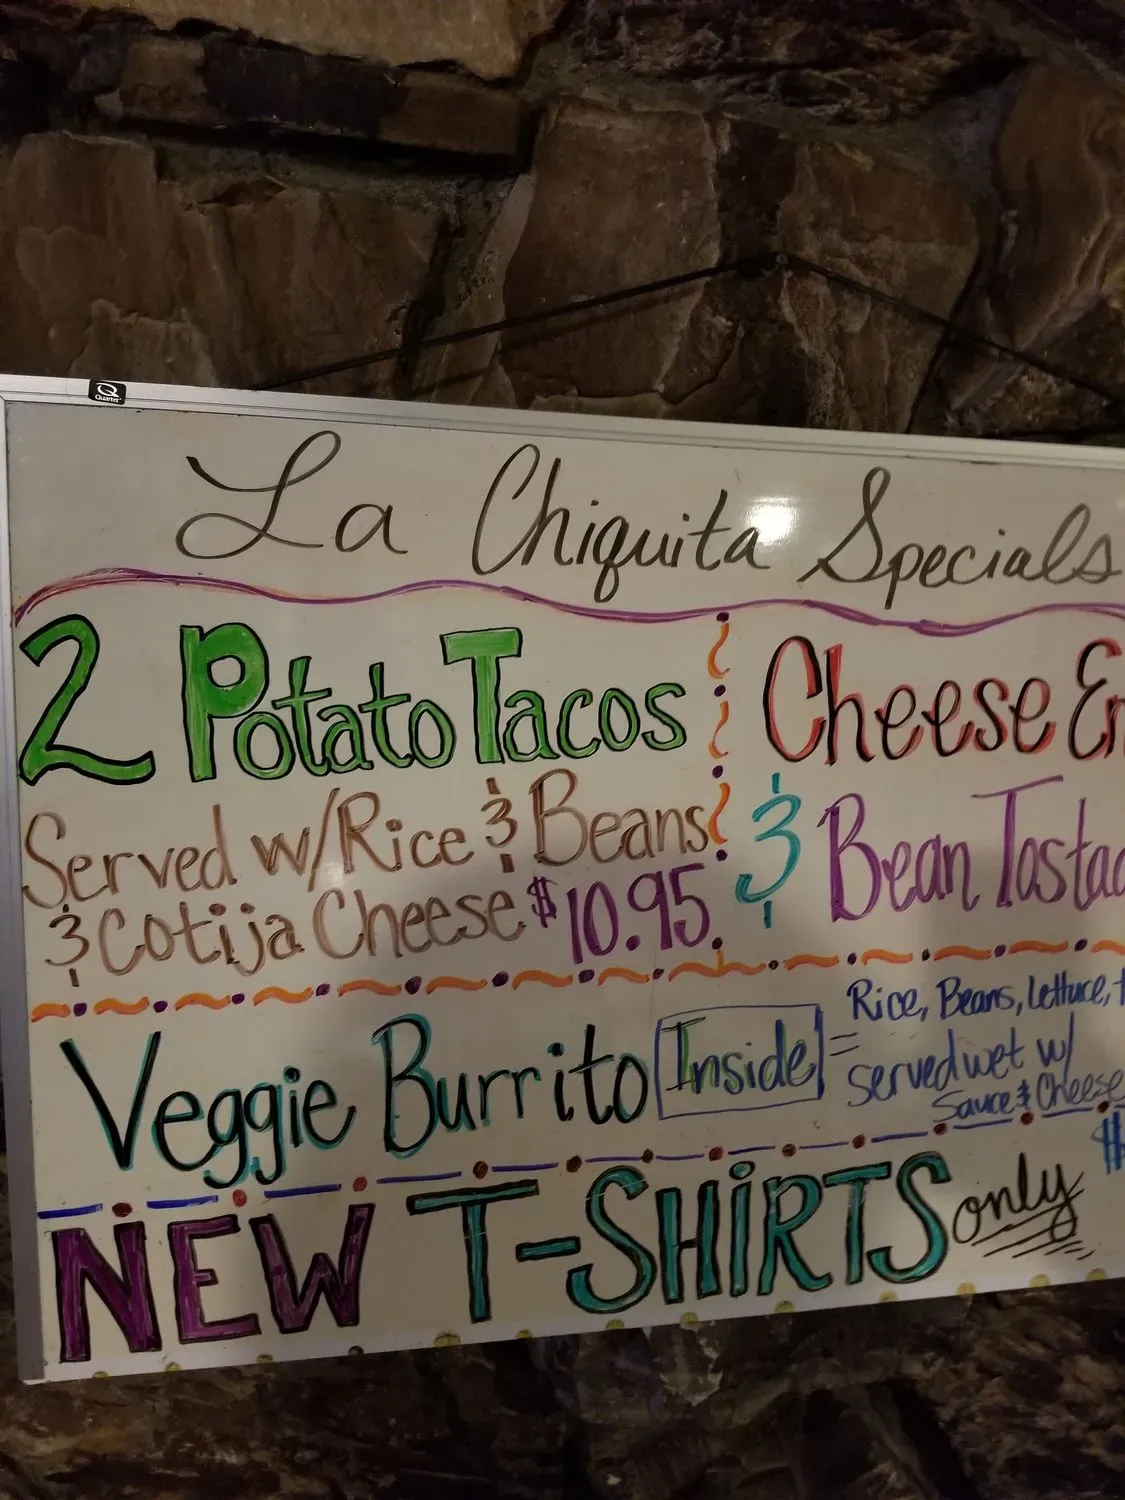 Quartet
La Chiquita Specials
2 Potato Tacos
Served w/Rice & Beans
& Cotija Cheese $10.95
Cheese En
& Bean Tostad
Veggie Burrito Inside =
Rice, Beans, Lettuce, t
served wet w/
Sauce & Cheese
$
NEW T-SHiRTS only